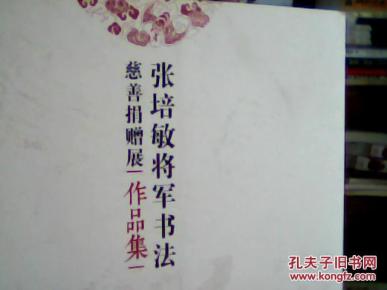 张培敏将军书法
慈善捐赠展|作品集|
孔夫子旧书网
www.kongfz.com